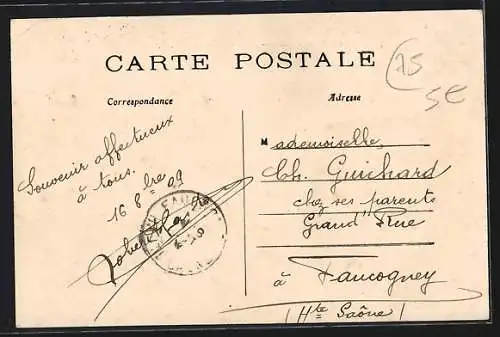 CARTE POSTALE
15
5€
Correspondance
Adresse
Souvenir affectueux
à tous.
16 8bre 09
Mademoiselle
Ch. Guichard
chez ses parents
Grand' Rue
à Faucogney
(Hte Saône)